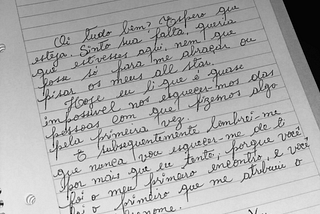 Oi tudo bem? Espero que
esteja. Sinto sua falta, queria
que estivesses aqui, nem que
fosse só para me abraçar ou
pisar os meus all star.
Hoje eu li que é quase
impossível nos esquecer-mos das
pessoas com que fizemos algo
pela primeira vez.
E subsequentemente lembrei-me
que nunca vou esquecer-me de ti
por más que eu tente, porque você
foi o meu primeiro encontro, e você
foi o primeiro que me atribuiu o
nome.